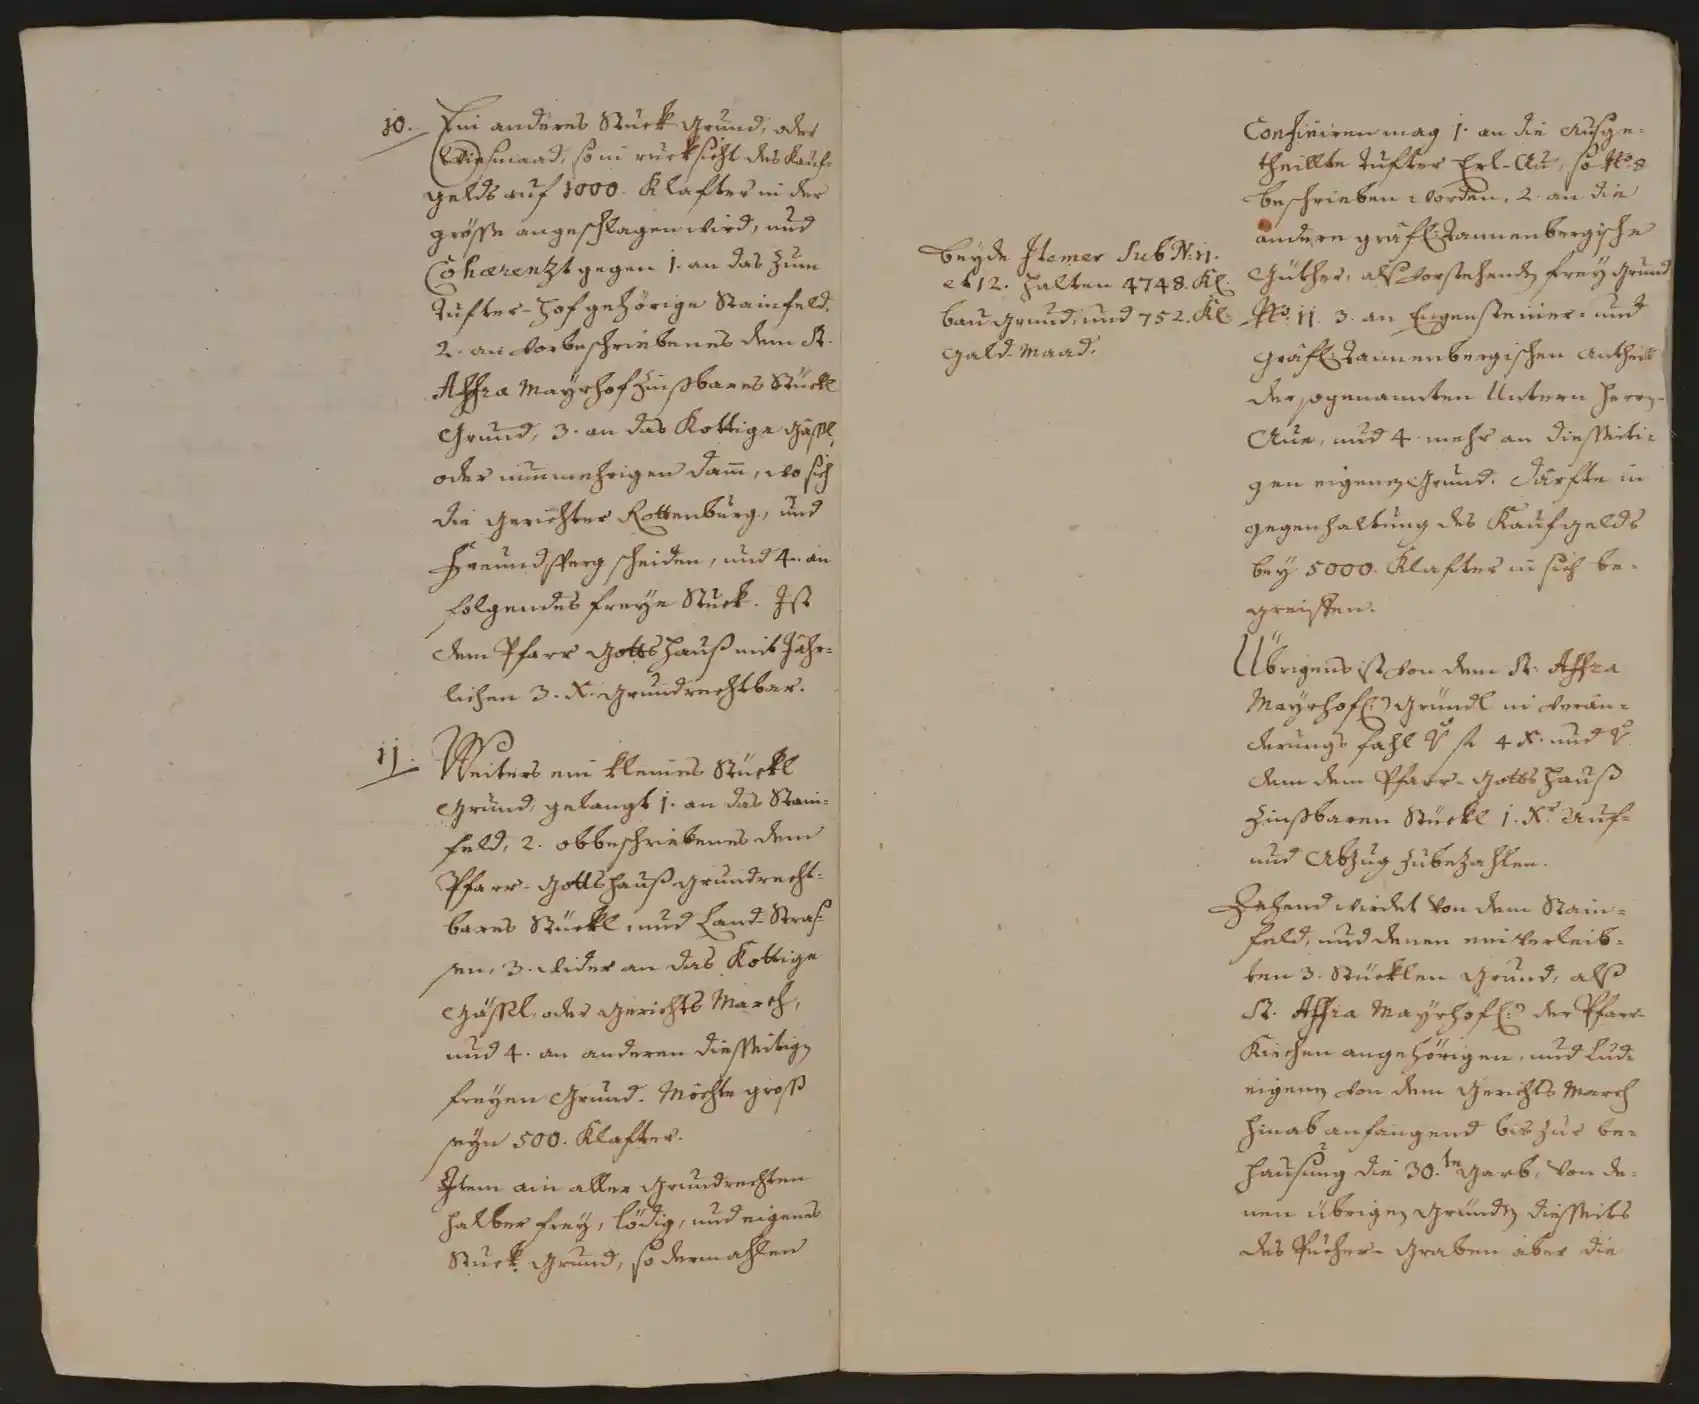 10. Ein anderes Stuck Grund, oder
Wiesmaad, so in rucksicht des Kauf-
gelds auf 1000. Klafter in der
grösse angeschlagen wird, und
Cohærentzt gegen 1. an das zum
Tufter-Hof gehörige Stainfeld,
2. an vorbeschriebenes dem St.
Affra Mayrhof zinßbares Stückl
Grund, 3. an das Kottige Gässl,
oder nunmehrigen Dam̄, wo sich
die Gerichter Rottenburg, und
Freundsperg scheiden, und 4. an
folgendes freye Stuck. Ist
dem Pfarr Gottshauß mit Jähr-
lichen 3. X. Grundrechtbar.
11. Weiters ein kleines Stückl
Grund, gelangt 1. an das Stain-
feld, 2. obbeschriebenes dem
Pfarr-Gottshauß grundrecht-
bares Stückl und Land-Stras-
sen, 3. wider an das Kottige
Gässl, oder Gerichts March,
und 4. an anderen diesseitigen
freyen Grund. Möchte groß
seyn 500. Klafter.
Item ain aller Grundrechten
halber frey, lödig, und eigenes
Stuck Grund, so dermahlen
beyde Itemer Sub N: 11.
et 12. halten 4748. Kl.
bau Grund, und 752. Kl.
Gald-Maad.
Confiniren mag 1. an die Ausge-
theillte Tufter Erl-Au, so No. 8
beschrieben worden, 2. an die
andere gräfl: Tannenbergische
Güther, als vorstehenden frey Grund
No. 11. 3. an Engensteiner- und
Gräfl: Tannenbergischen Antheill
der sogenannten Untern Herrn-
Aue, und 4. mehr an diesseiti-
gen eigenen Grund. Därfte in
gegenhaltung des Kaufgelds
bey 5000. Klafter in sich be-
greiffen.
Übrigens ist von dem St. Affra
Mayrhof(:) Gründl in verän-
derungs fahl 4 X. und
dem Pfarr-Gottshauß
zinßbaren Stückl 1. Xr. Auf-
und Abzug zubezahlen.
Zehend wirdet von dem Stain-
feld, und denen einverleib-
ten 3. Stücklen Grund, alß
St. Affra Mayrhof(:) der Pfarr-
Kirchen angehörigen, und Lud-
eigenen von dem Gerichts March
hinab anfangend bis zur be-
hausung die 30.te Garb, von de-
nen übrigen Gründen diesseits
des Bucher-Graben aber die